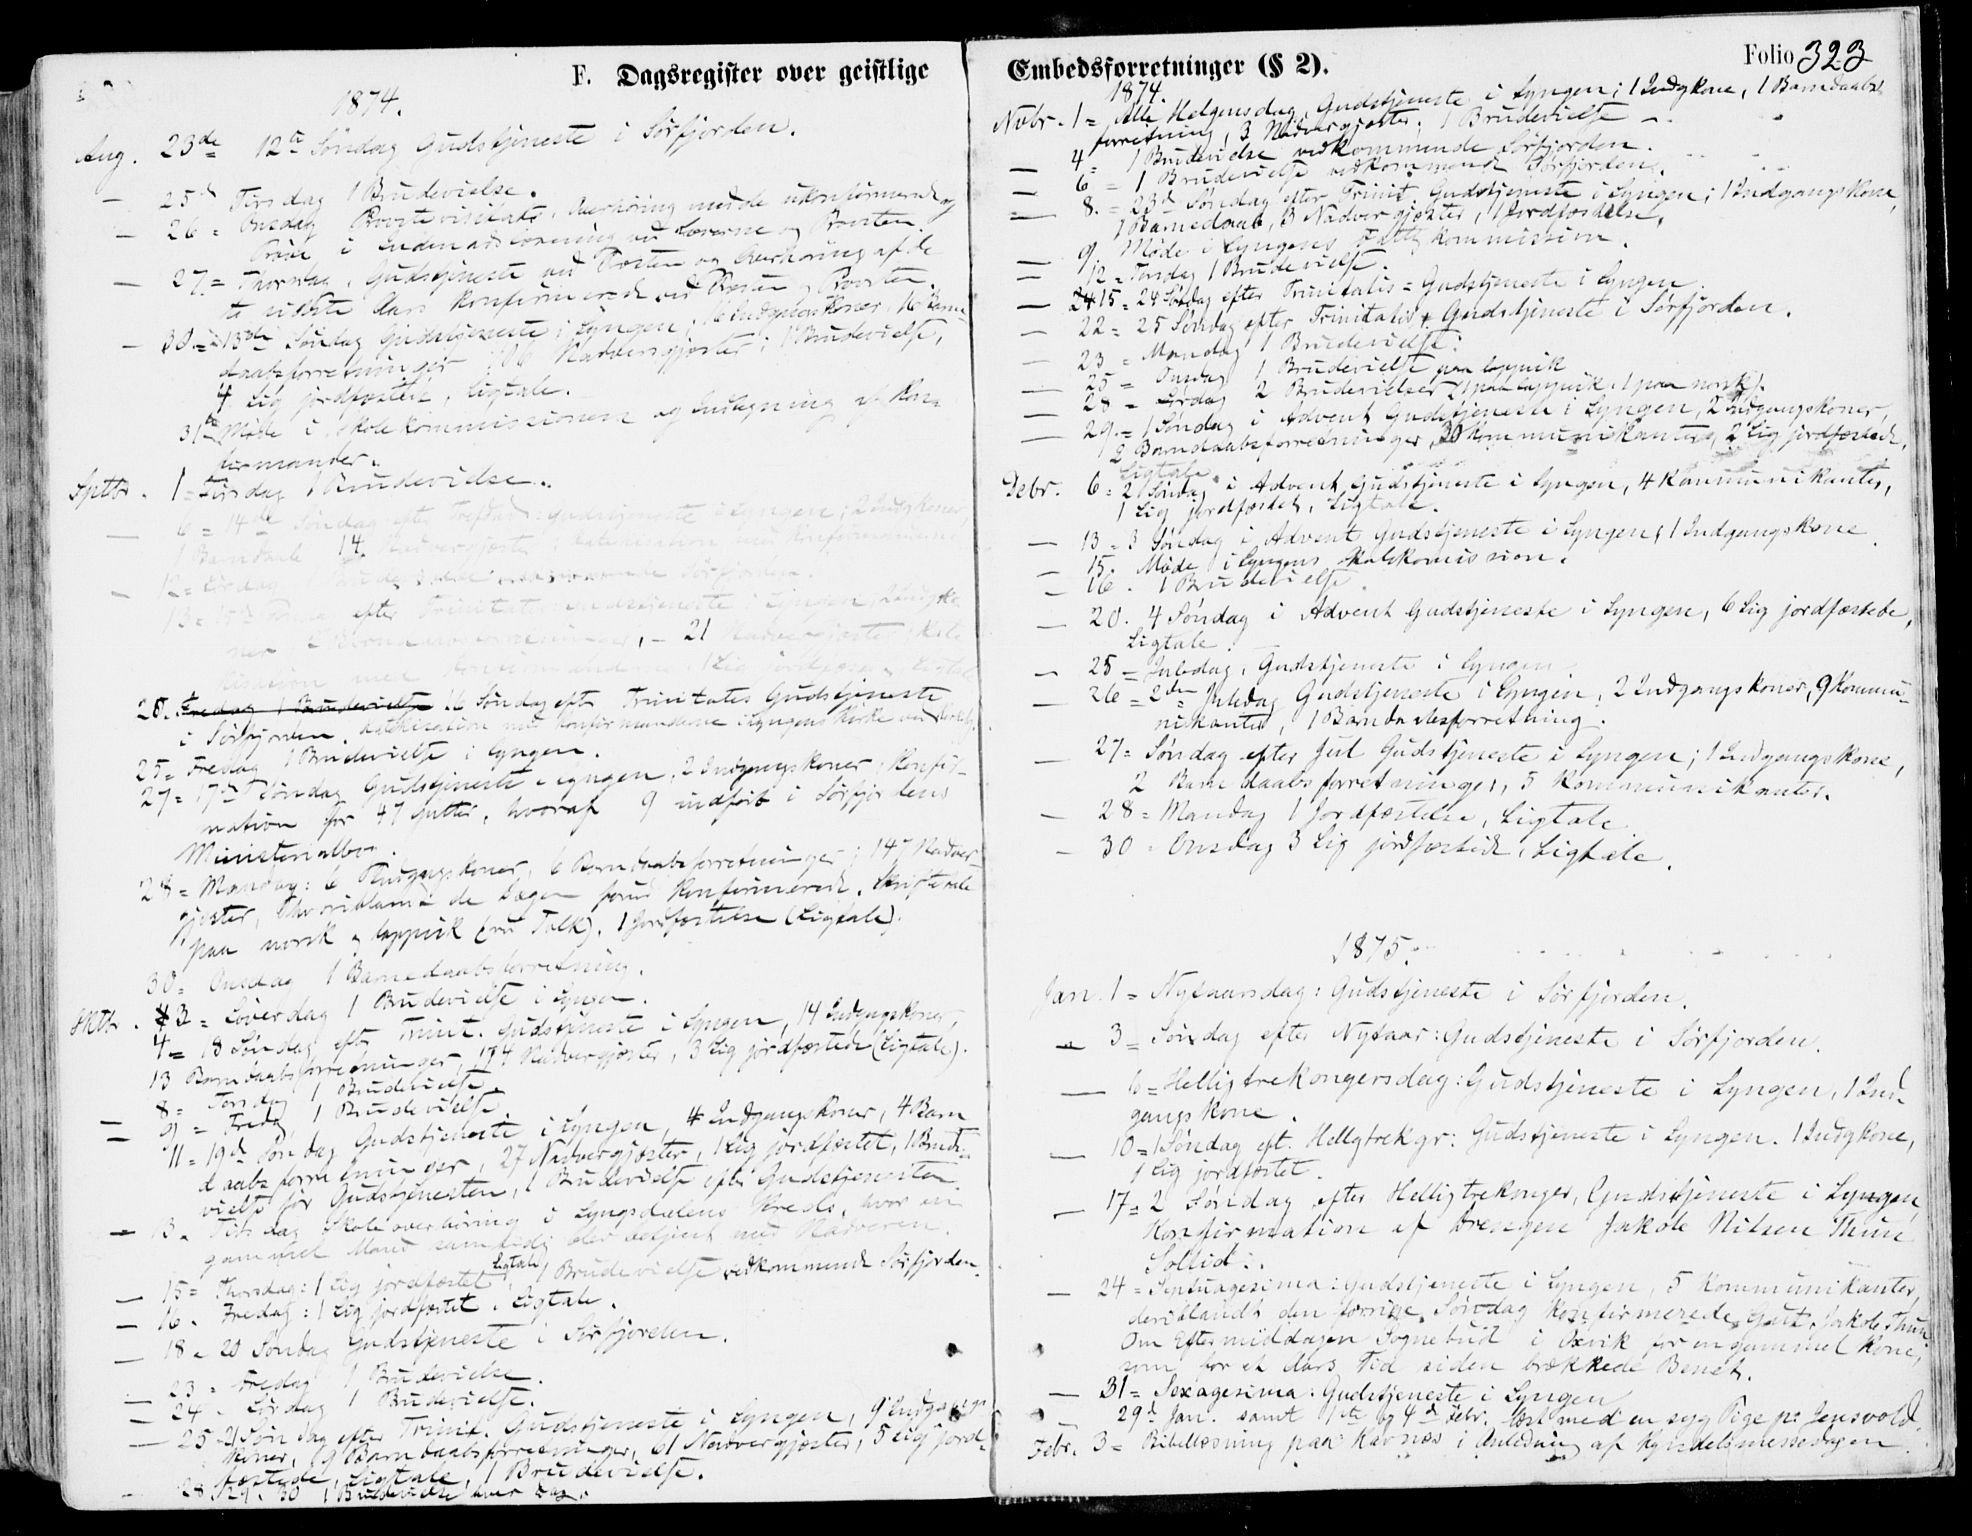 F. Dagsregister over geistlige
1874.
Aug. 23de 12te Søndag Gudstjeneste i Sørfjorden.
— 25 Tirsdag 1 Brudevielse.
— 26 = Onsdag Provstevisitats, Overhøring med de ukonfirmerede og
Prøve i Indenadslæsning ved Lærerne og Provsten.
— 27 = Thorsdag, Gudstjeneste ved Provsten og Overhøring af de
to sidste Aars konfirmerede ved Præsten og Provsten.
— 30 = 13de Søndag Gudstjeneste i Lyngen, 16 Indgangskoner, 16 Barne-
daabsforretninger, Nadvergjæster, 1 Brudevielse,
4 Lig jordfæstede, Ligtale.
31 Møde i Skolekommissionen og Indtegning af Kon-
firmander.
Sptbr. 1 = Tirsdag 1 Brudevielse.
— 6 = 14de Søndag efter Gudstjeneste i Lyngen, 2 Indgkoner,
1 Barnedaab 14 Nadvergjæster, Katekisation med Konfirmanderne
— 12 = Lørdag 1 Brudevielse vedkommende Sørfjorden.
13 = efter Trinitatis Gudstjeneste i Lyngen, 2 Indgko-
ner, 21 Nadvergjæster, Kate-
kisation med Konfirmanderne, 1 Lig jordfæstet, Ligtale
20. Fredag 1 Brudevielse 16 Søndag eft Trinitatis Gudstjeneste
i Sørfjorden. Katekisation med Konfirmanderne i Lyngens Kirke ved
25 = Fredag 1 Brudevielse i Lyngen.
27 = 17de Søndag Gudstjeneste i Lyngen, 2 Indgangskoner, Konfir-
mation for 47 Gutter, hvoraf 9 indført i Sørfjordens
Ministerialbog.
28 = Mandag: 6 Indgangskoner, 6 Barnedaabsforretninger, 147 Nadver-
gjæster, de Dagen forud Konfirmerede. Skriftetale
paa norsk og lappisk (ved Tolk). 1 Jordfæstelse (Ligtale).
30 = Onsdag 1 Barnedaabsforretning.
Oktbr. 3 = Løverdag 1 Brudevielse i Lyngen.
4 = 18 Søndag eft Trinit. Gudstjeneste i Lyngen, 14 Indgangskoner,
13 Barnedaabsforretninger, 174 Nadvergjæster, 3 Lig jordfæstede (Ligtale).
— 8 = Torsdag 1 Brudevielse.
— 9 = Fredag, 1 Brudevielse.
11 = 19d Søndag Gudstjeneste i Lyngen, 4 Indgangskoner, 4 Barn
daabsforretninger, 27 Nadvergjæster, 1 Lig jordfæstet, 1 Brude-
vielse før Gudstjenesten, 1 Brudevielse efter Gudstjenesten.
— 13. Tirsdag Skoleoverhøring i Lyngsdalens Kreds, hvor en
gammel Mand samtidig blev betjent med Nadveren.
— 15 = Thorsdag: 1 Lig jordfæstet, Ligtale, 1 Brudevielse vedkommende Sørfjorden.
— 16. Fredag: 1 Lig jordfæstet. Ligtale.
— 18 = 20 Søndag Gudstjeneste i Sørfjorden.
— 23 = Fredag 1 Brudevielse.
— 24. Lørdag 1 Brudevielse.
— 25 = 21 Søndag efter Trinit. Gudstjeneste i Lyngen, 9 Indgangs-
koner, 9 Barnedaabsforretninger, 61 Nadvergjæster, 5 Lig jord-
fæstede, Ligtale, 1 Brudevielse.
— 28, 29, 30 1 Brudevielse hver Dag.
Embedsforretninger (§ 2).
Folio 323
1874.
Nvbr. 1 = Alle Helgensdag, Gudstjeneste i Lyngen; 1 Indgkone, 1 Barnedaabs
forretning, 3 Nadvergjæster, 1 Brudevielse
— 4 = 1 Brudevielse vedkommende Sørfjorden.
— 6 = 1 Brudevielse vedkommende Sørfjorden.
— 8. = 23d Søndag efter Trinit. Gudstjeneste i Lyngen; 1 Indgangskone,
1 Barnedaab, 3 Nadvergjæster, 1 Jordfæstelse.
— 9. Møde i Lyngens Fattigkommission.
— 12 = Torsdag 1 Brudevielse.
— 15 = 24 Søndag efter Trinitatis = Gudstjeneste i Lyngen.
— 22 = 25 Søndag efter Trinitatis = Gudstjeneste i Sørfjorden.
— 23 = Mandag 1 Brudevielse.
— 25 = Onsdag 1 Brudevielse paa lappisk
— 28 = Lørdag 2 Brudevielser (1 paa lappisk, 1 paa norsk).
— 29. = 1 Søndag i Advent Gudstjeneste i Lyngen, 2 Indgangskoner,
2 Barnedaabsforretninger, 30 Kommunikanter, 2 Lig jordfæstede,
Ligtale.
Debr. 6 = 2 Søndag i Advent, Gudstjeneste i Lyngen, 4 Kommunikanter,
1 Lig jordfæstet, Ligtale.
— 13 = 3 Søndag i Advent Gudstjeneste i Lyngen, 1 Indgangskone
— 15. Møde i Lyngens Skolekomission.
— 16. 1 Brudevielse
— 20. 4 Søndag i Advent Gudstjeneste i Lyngen, 6 Lig jordfæstede,
Ligtale.
— 25 = Juledag, Gudstjeneste i Lyngen
— 26 = 2den Juledag Gudstjeneste i Lyngen, 2 Indgangskoner, 9 Kommu-
nikanter, 1 Barnedaabsforretning.
— 27 = Søndag efter Jul Gudstjeneste i Lyngen; 1 Indgangskone,
2 Barnedaabsforretninger, 5 Kommunikanter.
— 28 = Mandag 1 Jordfæstelse, Ligtale
— 30 = Onsdag 3 Lig jordfæstede, Ligtale.
1875.
Jan. 1 = Nytaarsdag: Gudstjeneste i Sørfjorden.
— 3 = Søndag efter Nytaar: Gudstjeneste i Sørfjorden.
— 6 = Helligtrekongersdag: Gudstjeneste i Lyngen, 1 Ind-
gangskone.
— 10 = 1 Søndag eft. Helligtrekgr: Gudstjeneste i Lyngen. 1 Indgkone,
1 Lig jordfæstet.
— 17 = 2 Søndag efter Helligtrekonger, Gudstjeneste i Lyngen,
Konfirmation af Drengen Jakob Nilsen Thun
Sollid.
— 24 = Septuagesima: Gudstjeneste i Lyngen, 5 Kommunikanter,
deriblandt den forrige Søndag Konfirmerede Gut, Jakob Thun
Om Eftermiddagen Sognebud i Oxvik for en gammel Kone,
som for et Aars Tid siden brækkede Benet.
— 31 = Sexagesima: Gudstjeneste i Lyngen
— 29d Jan. samt 1ste og 4d Febr. læst med en syg Pige pa Jensvold.
Febr. 3 = Bibellæsning paa Kavnæs i Anledning af Kyndelsmessedagen.